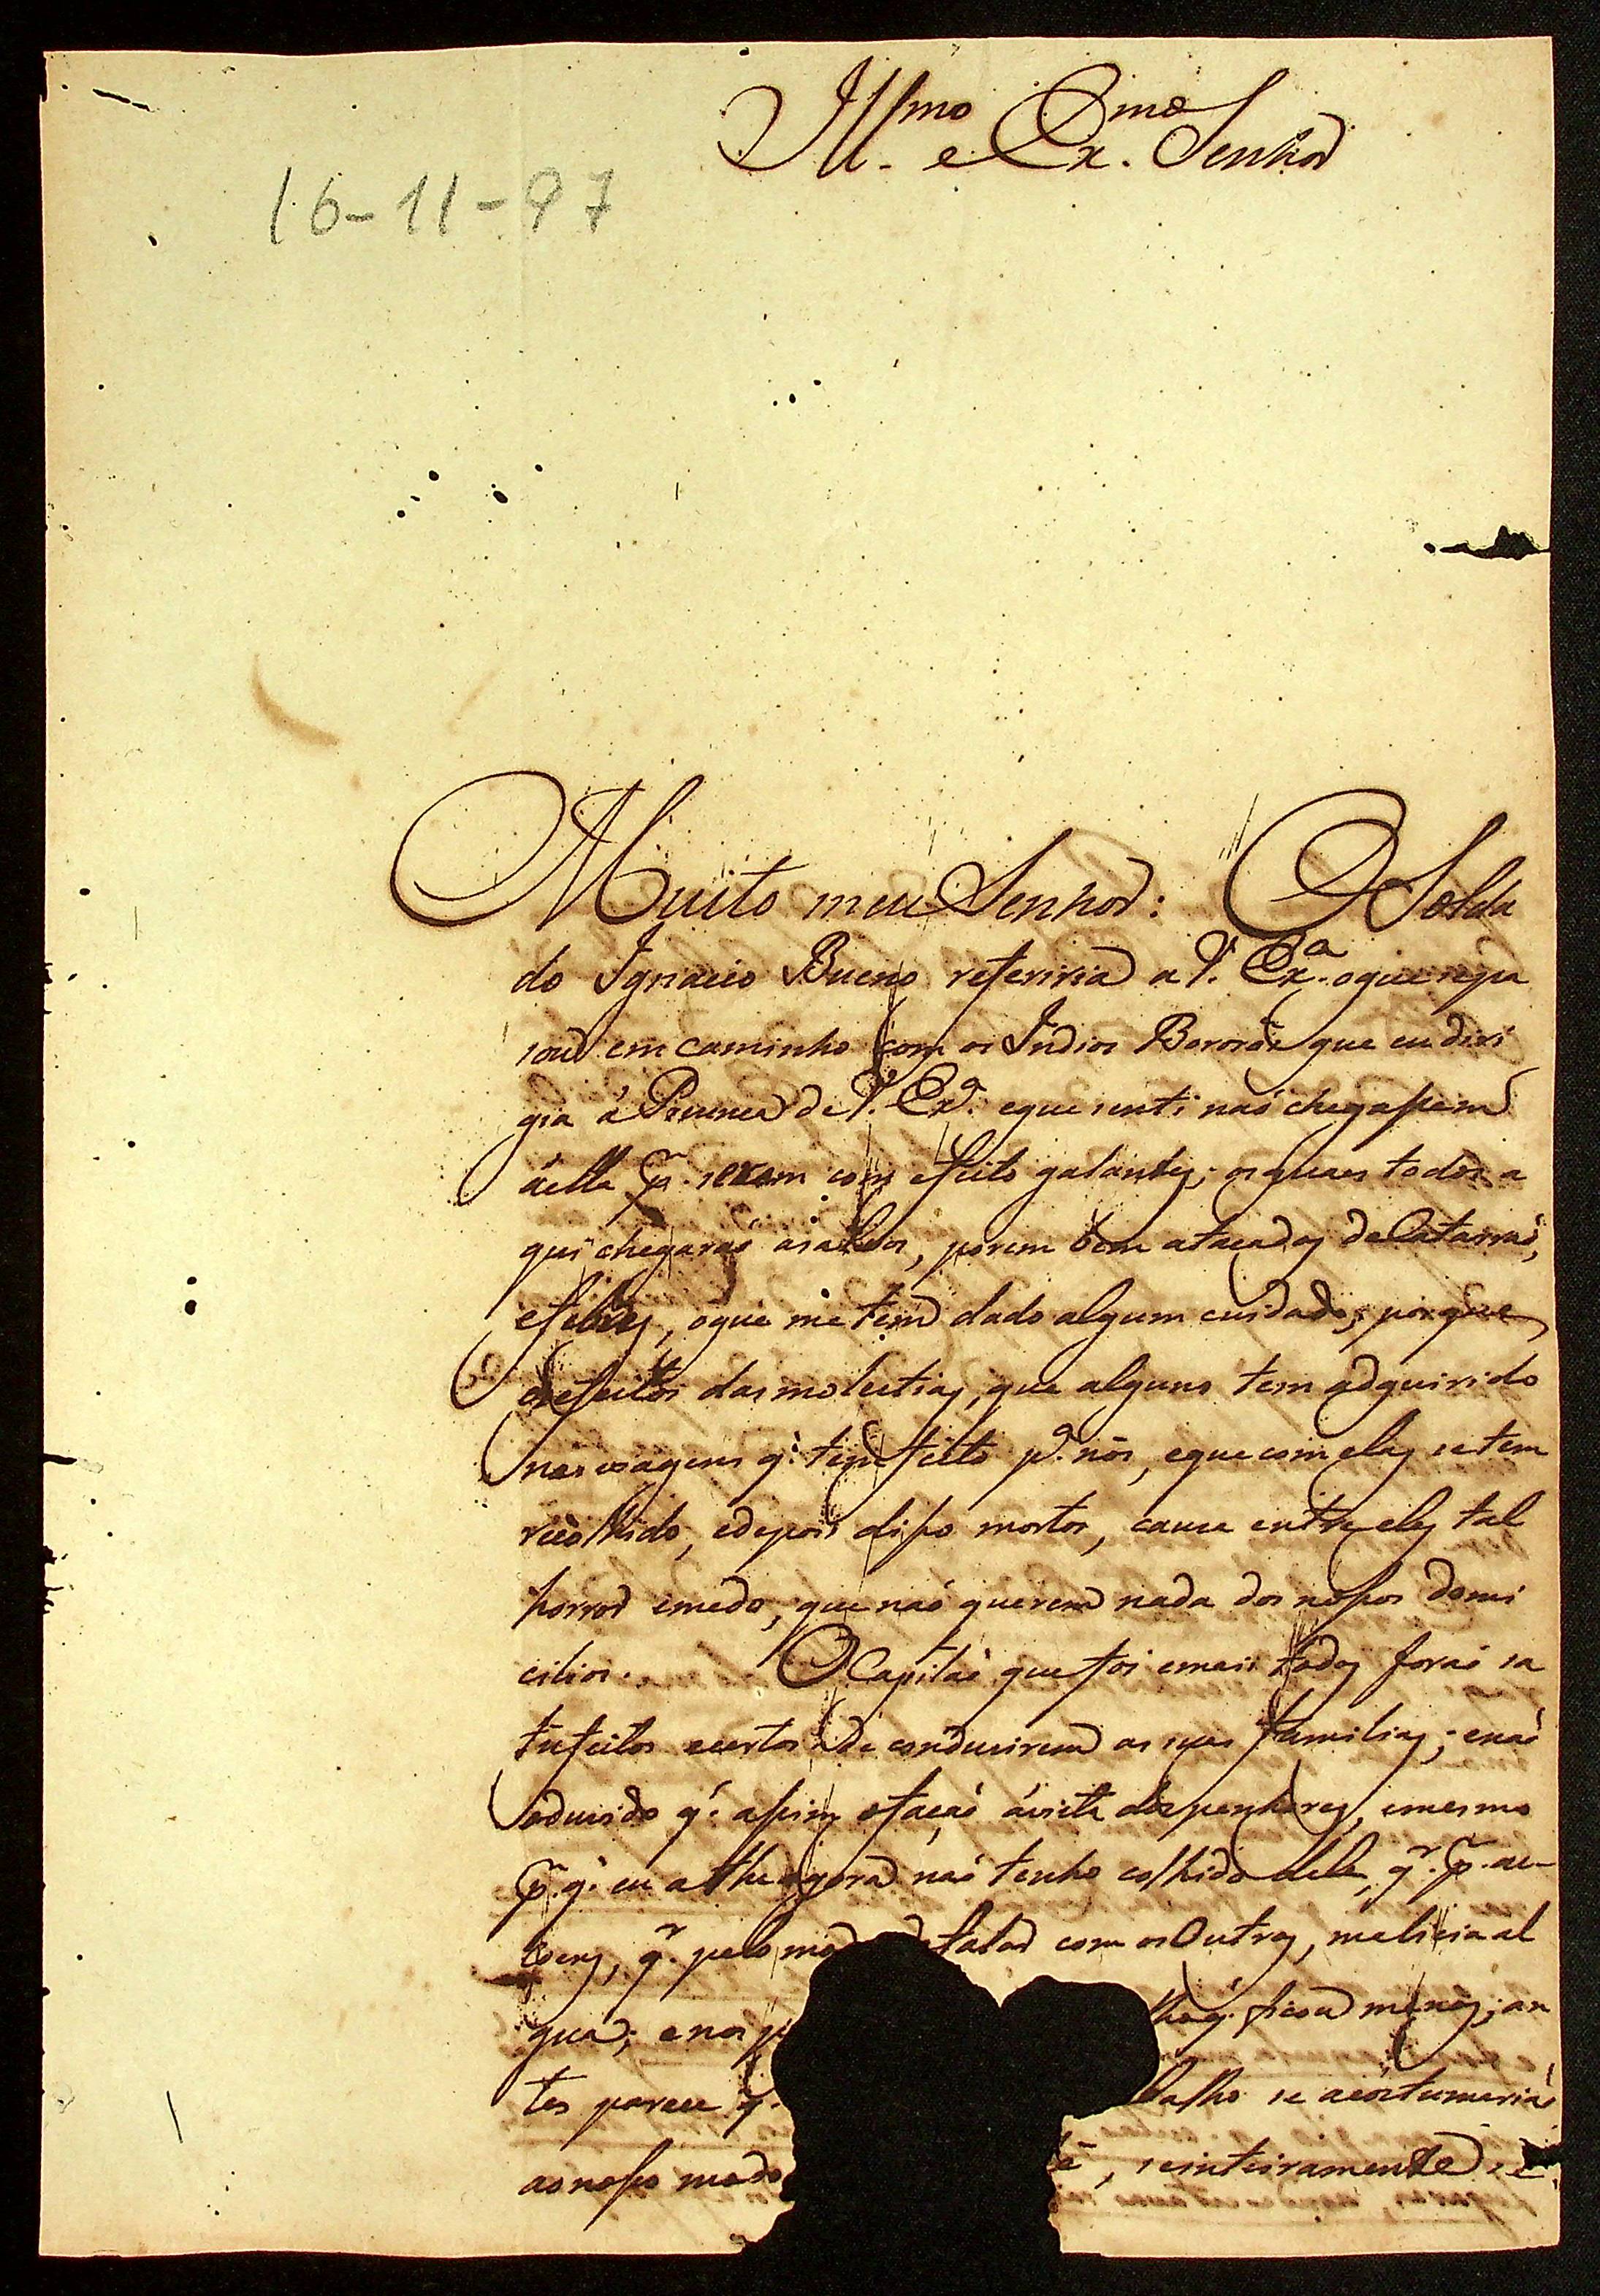 Ill.mo e Ex.mo Senhor
16-11-97
Muito meu Senhor: O Solda
do Ignacio Bueno referiria a V. Ex.a o que sepa
sou em caminho com os Indios Bororós que eu diri
gia á Prezença de V. Ex.a e que senti naõ chegassem
áella p.r serem com efeito galantes; os quaes todos a
qui chegaraõ asalvos, porem bem atacados deCatarraõ,
efebres, oque me tem dado algum cuidado; porque
osefeitos dasmolestias, que alguns tem adquirido
nas viagens q. tem feito p.a nós, eque com elas setem
recolhido, edepois disso mortos, cauza entre eles tal
horror emedo, que naõ querem nada dos nossos domi
cilios. O Capitaõ que foi emais todos foraõ sa
tisfeitos ecertos de conduzirem as suas familias; enaõ
duvido q. assim ofaçaõ ávista dos penhores, emesmo
p.r q. eu athe agora naõ tenho colhido dele, q.r p. ac-
çoens, q.r pelo mod falar com os Outros, malicia al
gua; e nos p lhaq. ficou menos; an
tes parece q. balho se acostumariaõ
ao nosso modo é, seinteiramente se